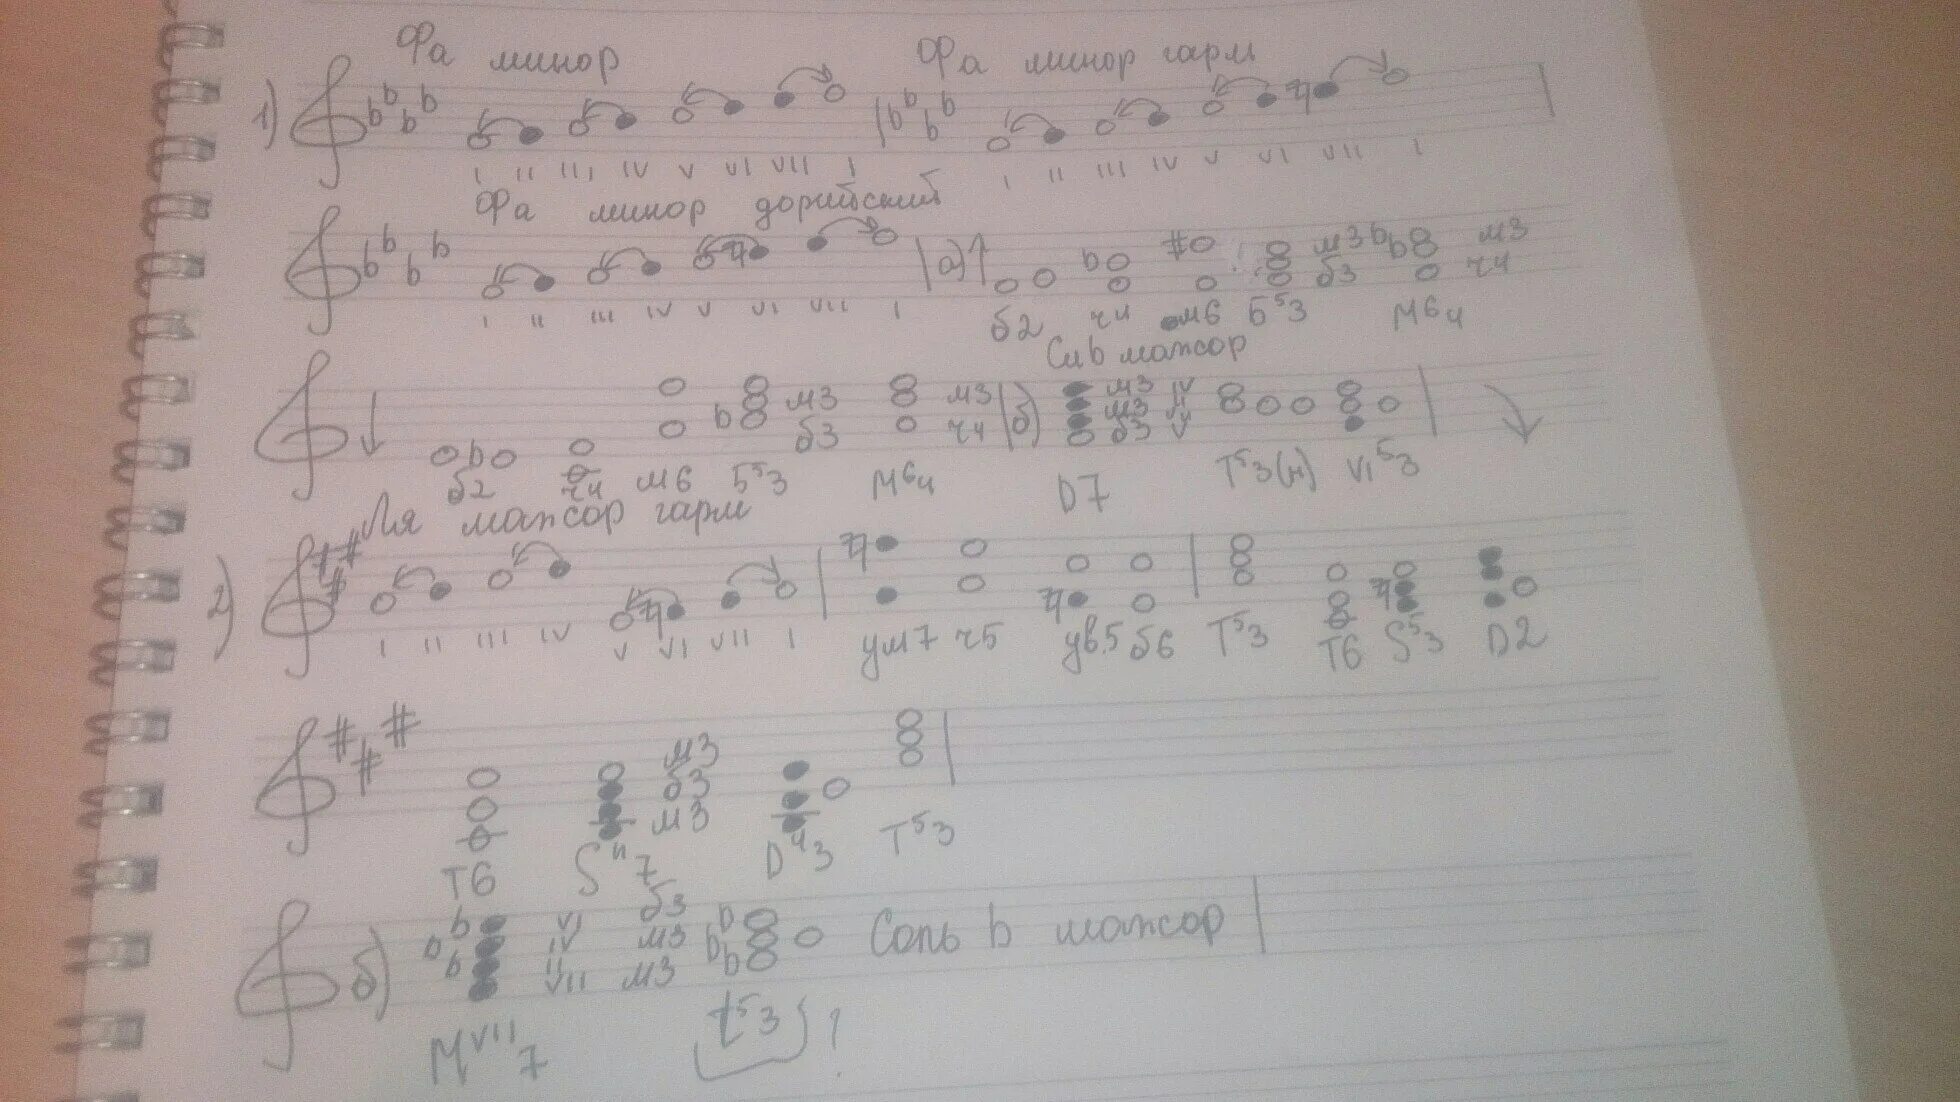 Фа минор Фа минор гарм
1)
I II III IV V VI VII I I II III IV V VI VII I
Фа минор дорийский
а) м3 м3
б3 ч4
I II III IV V VI VII I б2 ч4 м6 Б53 М64
Сиb мажор
м3 м3 б) м3 IV
м3 II
б3 ч4 б3 V
б2 ч4 м6 Б53 М64 D7 T53(н) VI53
Ля мажор гарм
2)
I II III IV V VI VII I ум7 ч5 ув.5 б6 T53 T6 S53 D2
м3
б3
м3
T6 SII7 D43 T53
б) VI б3 Сольb мажор
IV м3
II
VII м3
МVII7 t53 ?